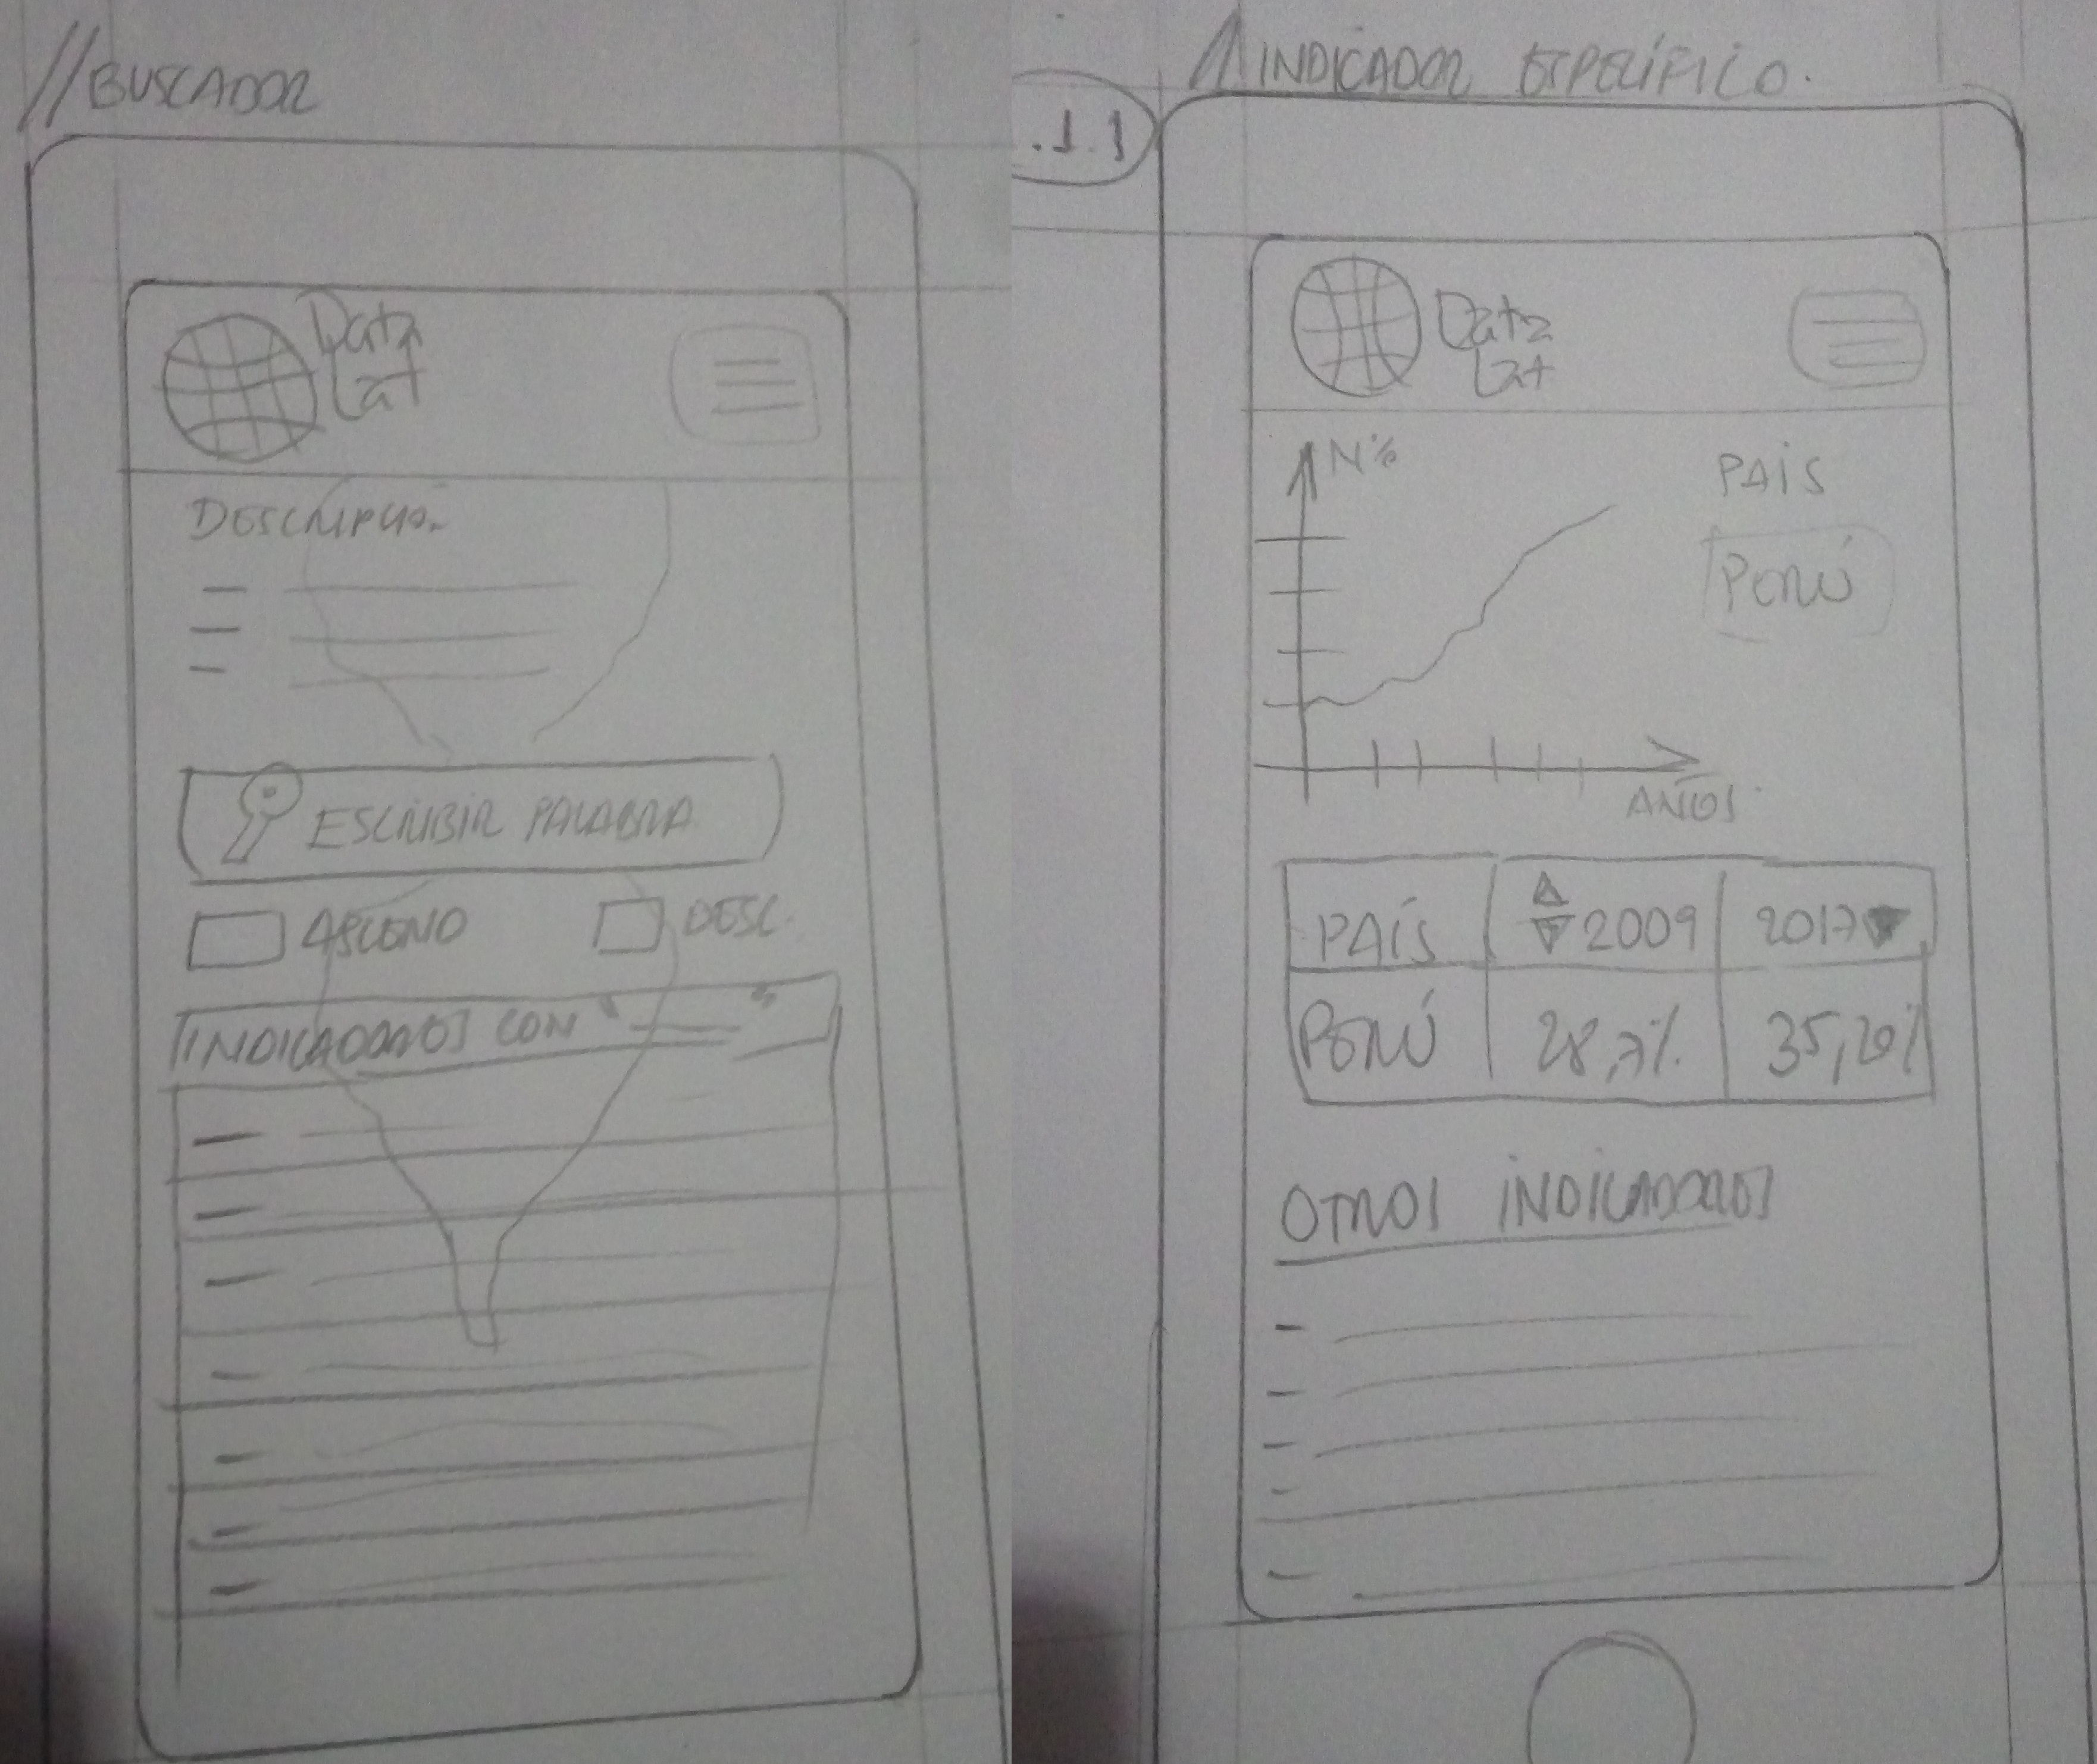 // BUSCADOR
Data
Lat
DESCRIPCIÓ.
ESCRIBIR PALABRA
ASCEND
DESC.
INDICADORES CON " "
INDICADOR ESPECÍFICO.
.1.1
Data
Lat
N%
PAÍS
PERÚ
AÑOS
PAÍS 2009 2017
PERÚ 28,7% 35,20%
OTROS INDICADORES